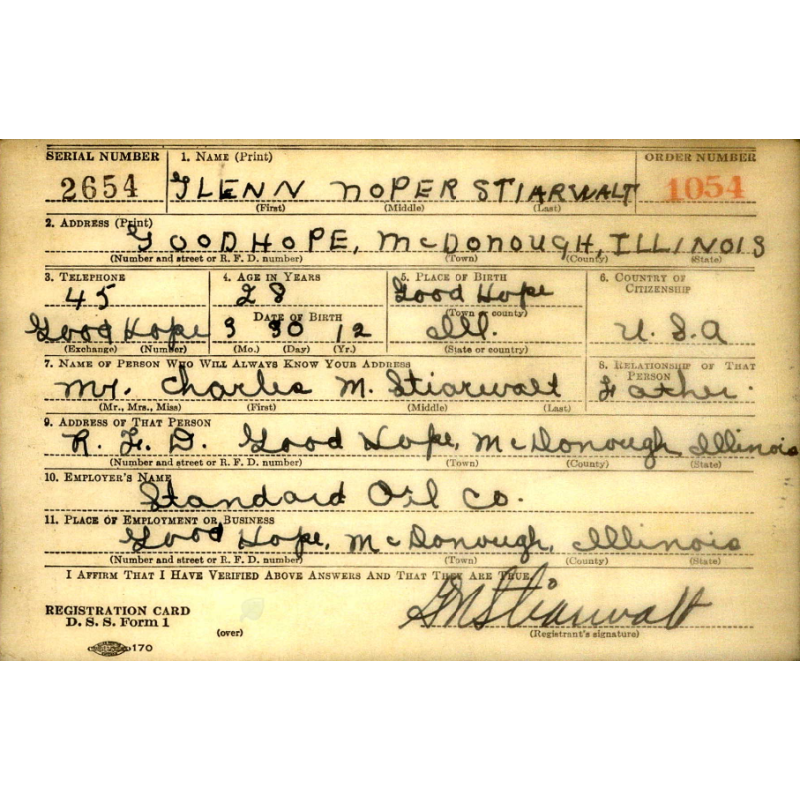 SERIAL NUMBER 1. NAME (Print) ORDER NUMBER
2654 GLENN NOPER STIARWALT 1054
(First) (Middle) (Last)
2. ADDRESS (Print)
GOOD HOPE, McDONOUGH, ILLINOIS
(Number and street or R. F. D. number) (Town) (County) (State)
3. TELEPHONE 4. AGE IN YEARS 5. PLACE OF BIRTH 6. COUNTRY OF CITIZENSHIP
45 28 Good Hope
DATE OF BIRTH (Town or county)
Good Hope 3 30 12 Ill. U.S.A
(Exchange) (Number) (Mo.) (Day) (Yr.) (State or country)
7. NAME OF PERSON WHO WILL ALWAYS KNOW YOUR ADDRESS 8. RELATIONSHIP OF THAT PERSON
Mr. Charles M. Stiarwalt Father.
(Mr., Mrs., Miss) (First) (Middle) (Last)
9. ADDRESS OF THAT PERSON
R. F. D. Good Hope, McDonough Illinois
(Number and street or R. F. D. number) (Town) (County) (State)
10. EMPLOYER'S NAME
Standard Oil Co.
11. PLACE OF EMPLOYMENT OR BUSINESS
Good Hope, McDonough, Illinois
(Number and street or R. F. D. number) (Town) (County) (State)
I AFFIRM THAT I HAVE VERIFIED ABOVE ANSWERS AND THAT THEY ARE TRUE.
REGISTRATION CARD GNStiarwalt
D. S. S. Form 1 (over) (Registrant's signature)
170